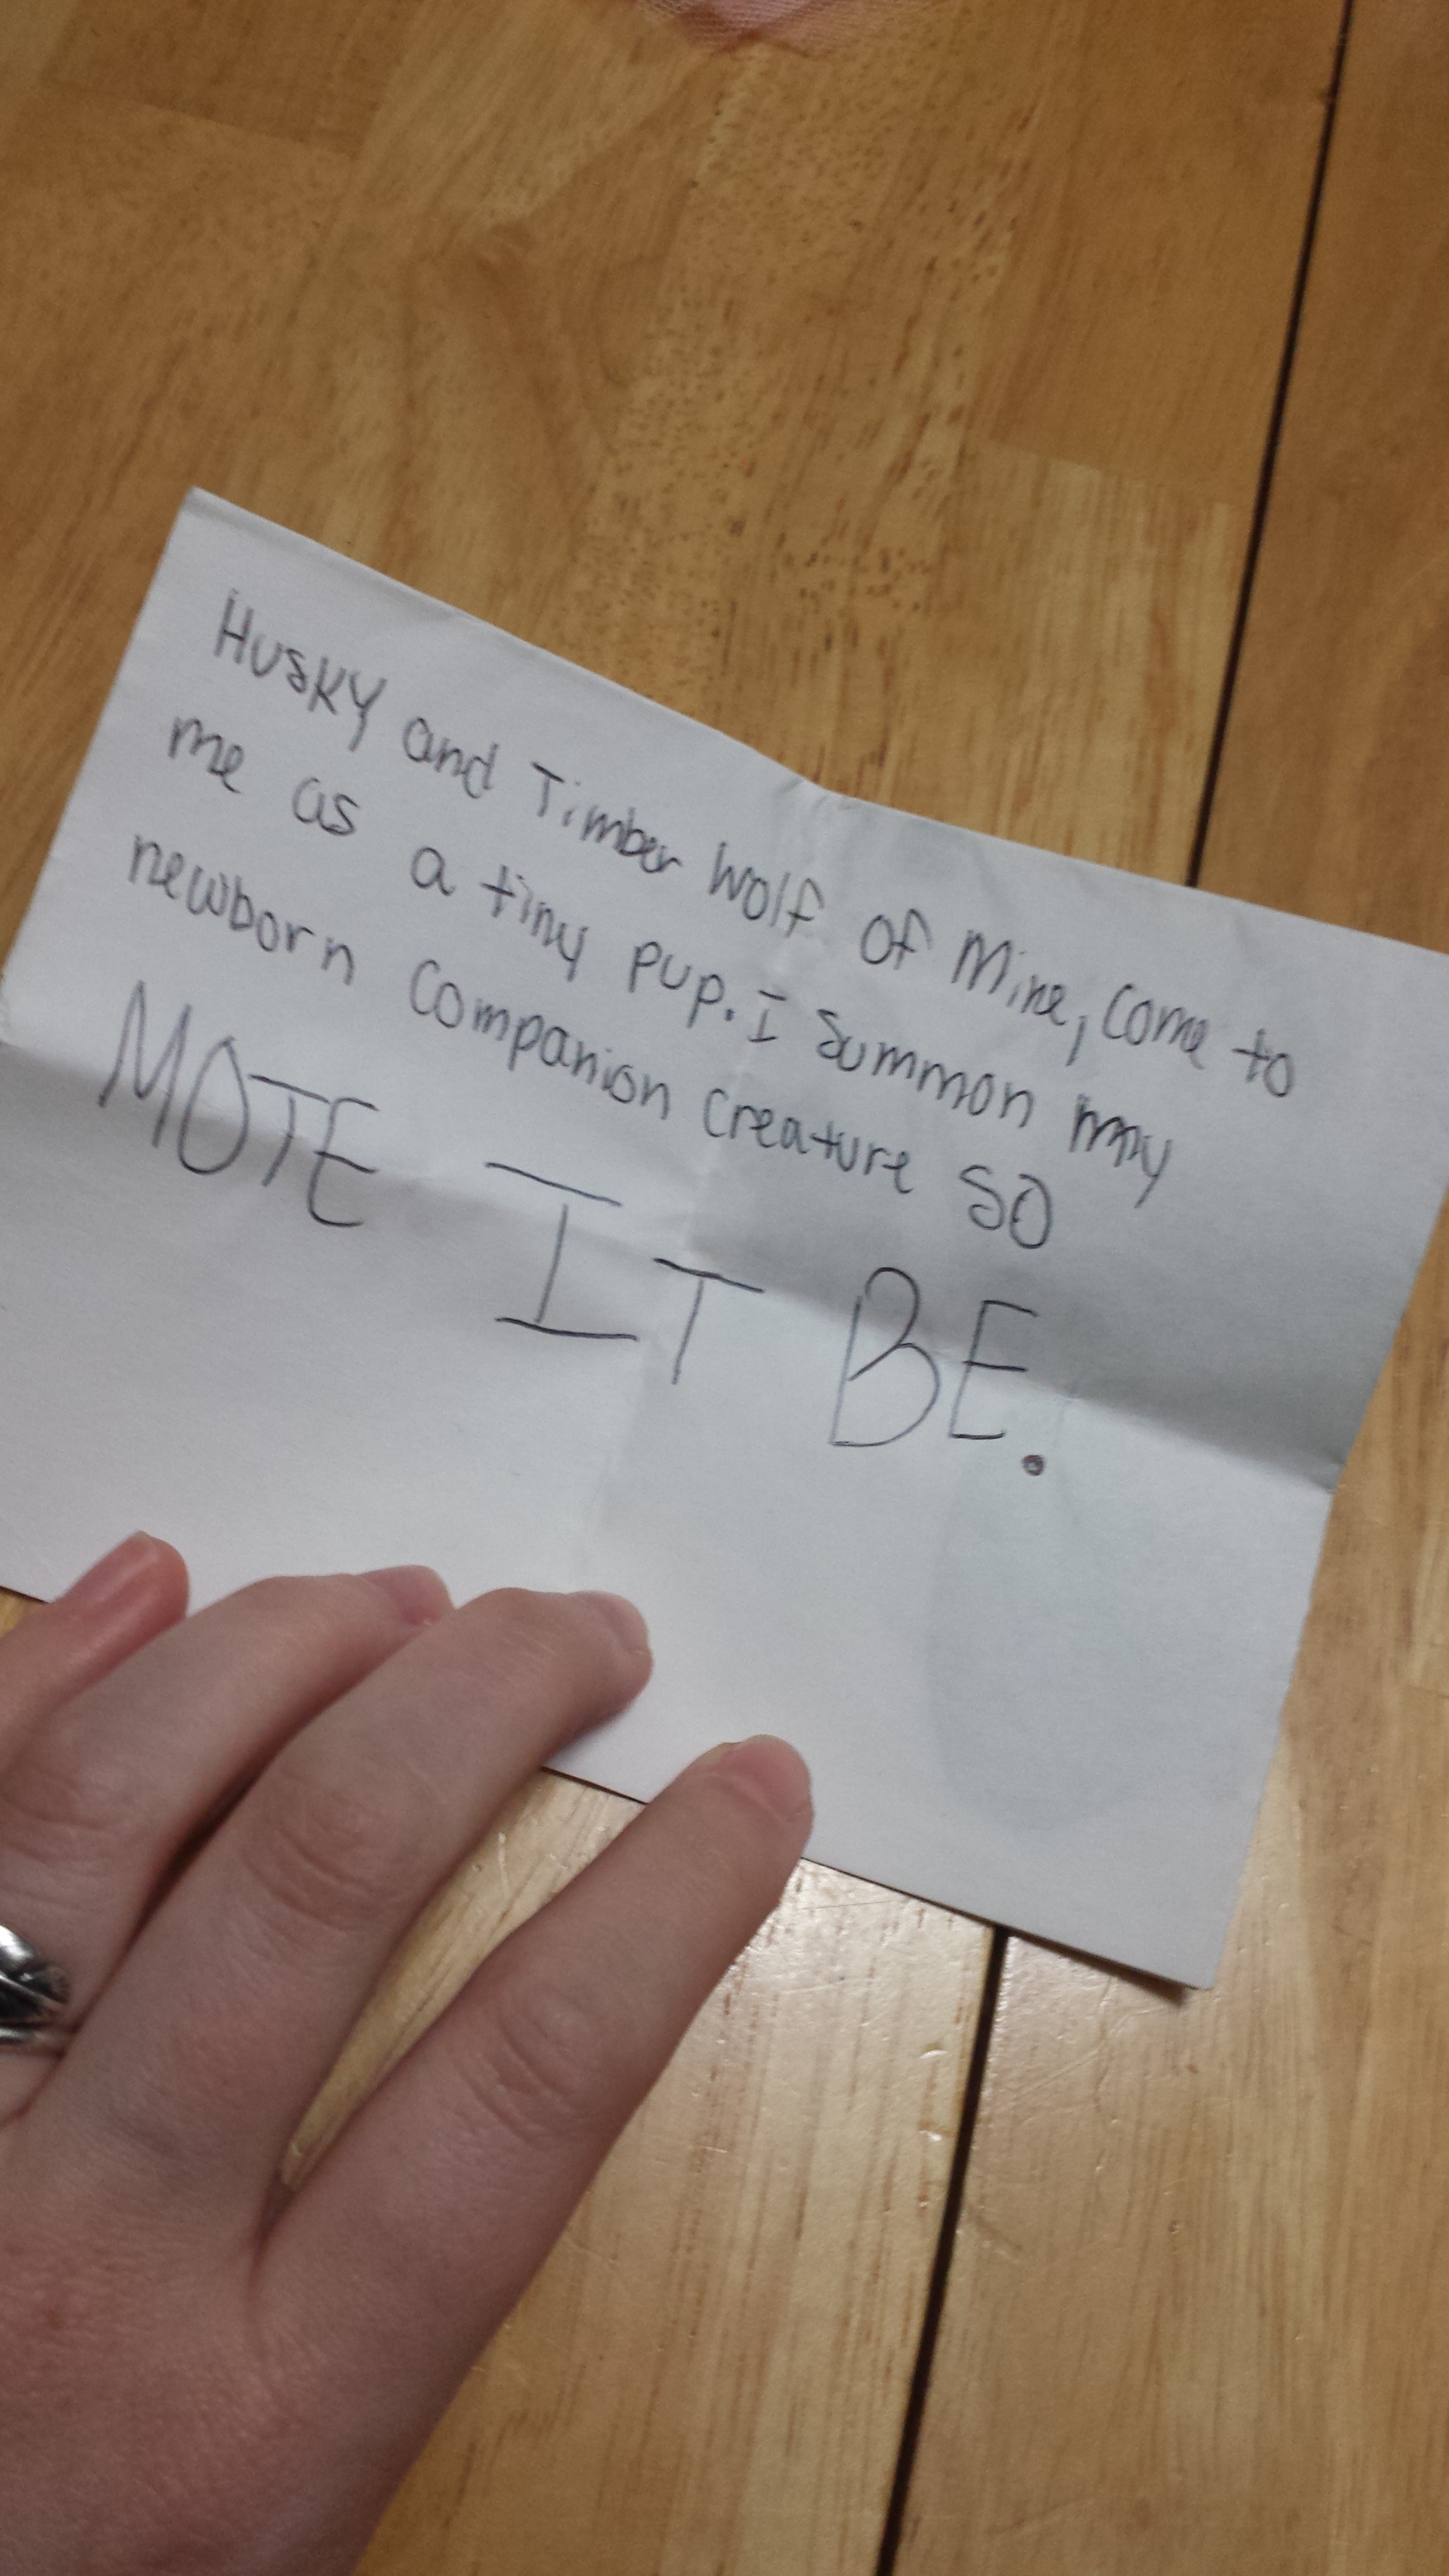 Husky and Timber Wolf of Mine, Come to
me as a tiny pup. I Summon my
newborn Companion Creature SO
MOTE IT BE.